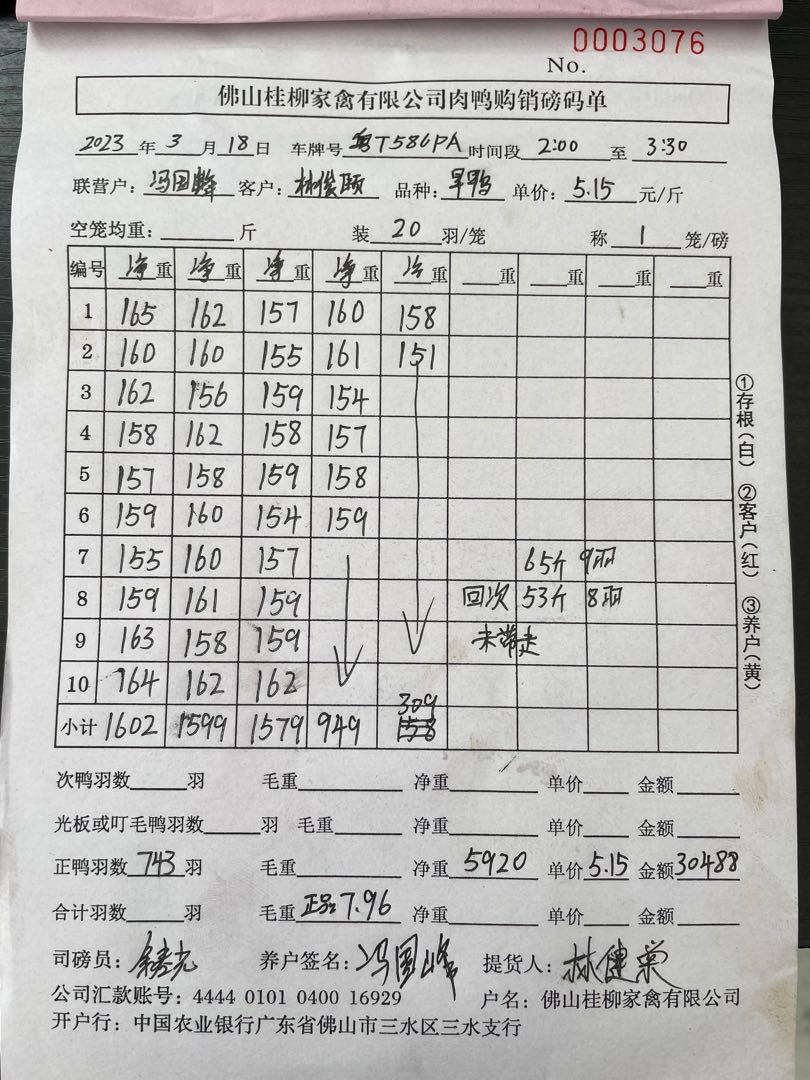 0003076
No.
佛山桂柳家禽有限公司肉鸭购销磅码单
2023年3月18日 车牌号粤T586PA时间段2:00至3:30
联营户：冯国峰 客户：林俊颐 品种：旱鸭 单价：5.15元/斤
空笼均重：斤 装20羽/笼 称1笼/磅
编号 净重 净重 净重 净重 次重 重 重 重 重
1 165 162 157 160 158
2 160 160 155 161 151
3 162 156 159 154
4 158 162 158 157
5 157 158 159 158
6 159 160 154 159
7 155 160 157 65斤 9羽
8 159 161 159 回次 53斤 8羽
9 163 158 159 未带走
10 164 162 162
309
小计 1602 1599 1579 949 158
①存根（白） ②客户（红） ③养户（黄）
次鸭羽数羽 毛重 净重 单价 金额
光板或叮毛鸭羽数羽 毛重 净重 单价 金额
正鸭羽数743羽 毛重 净重5920 单价5.15 金额30488
合计羽数羽 毛重正品7.96 净重 单价 金额
司磅员： 养户签名：冯国峰 提货人：林健荣
公司汇款账号：4444 0101 0400 16929 户名：佛山桂柳家禽有限公司
开户行：中国农业银行广东省佛山市三水区三水支行